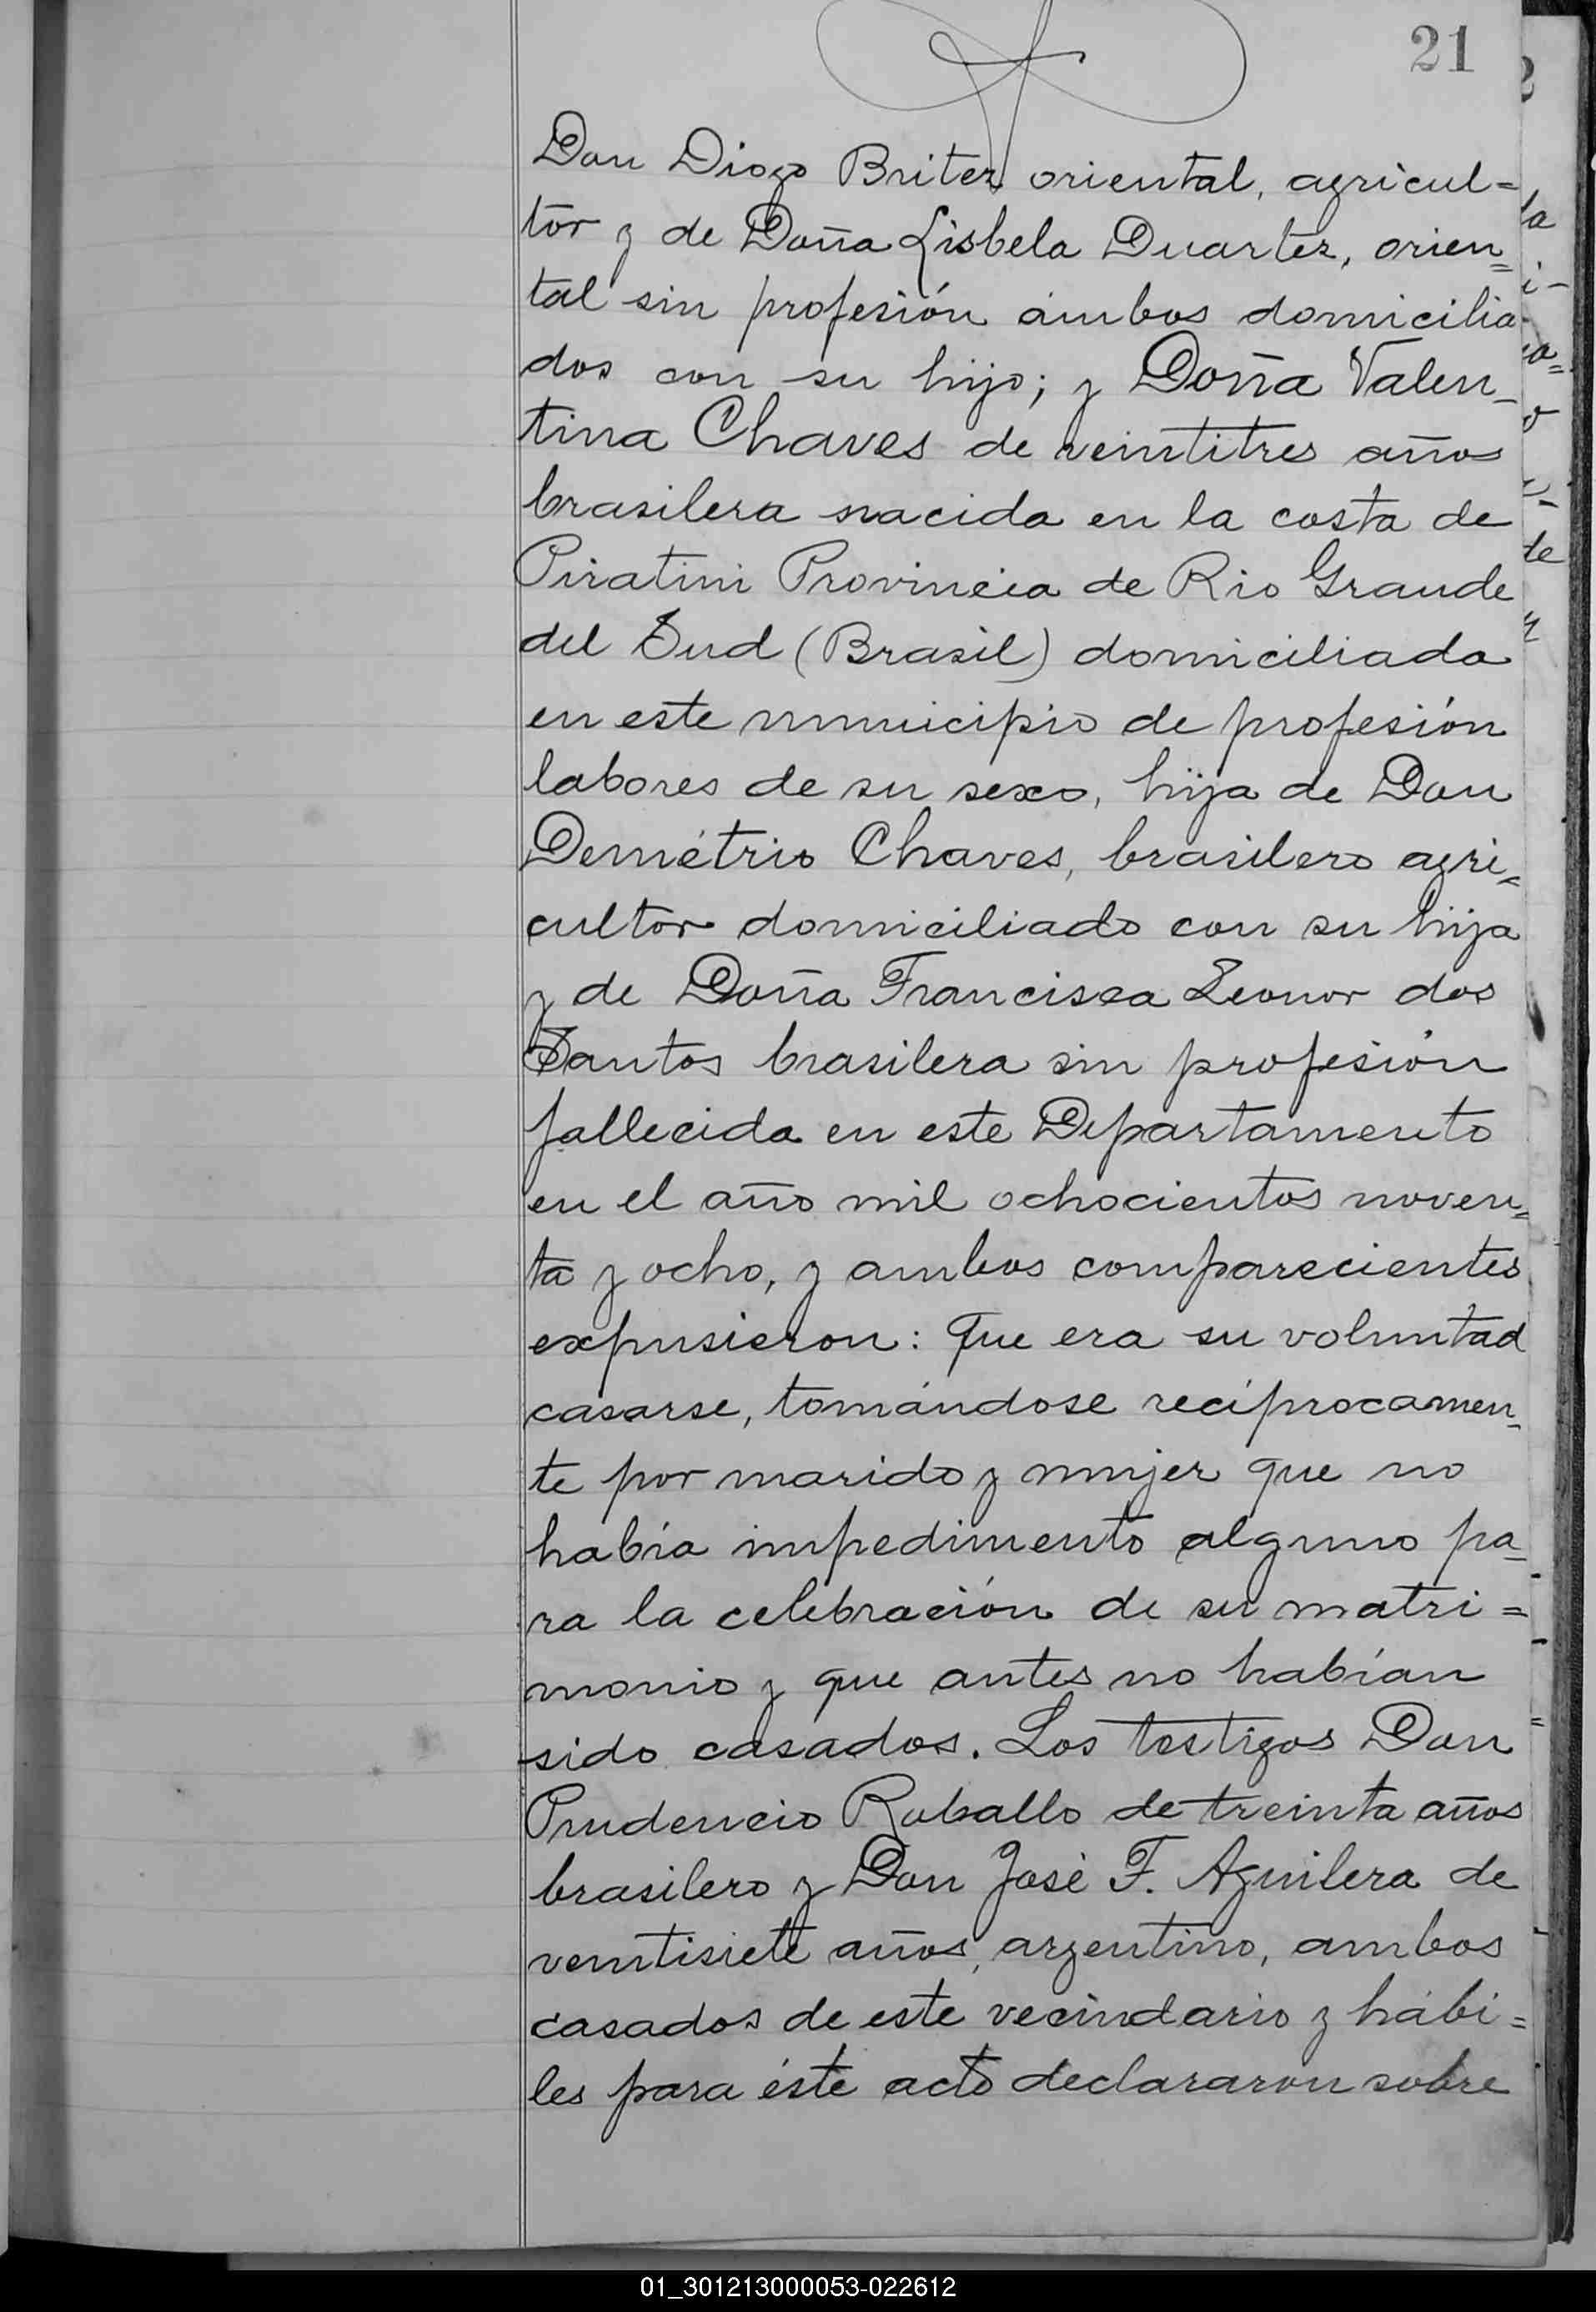 21
Don Diogo Britez oriental, agricul=
tor y de Doña Lisbela Duartez, orien=
tal sin profesión ámbos domicilia-
dos con su hijo; y Doña Valen-
tina Chaves de veintitres años
brasilera nacida en la costa de
Piratini Provincia de Rio Grande
del Sud (Brasil) domiciliada
en este municipio de profesión
labores de su sexo, hija de Don
Demétrio Chaves, brasilero agri=
cultor domiciliado con su hija
y de Doña Francisca Leonor dos
Santos brasilera sin profesión
fallecida en este Departamento
en el año mil ochocientos noven=
ta y ocho, y ambos comparecientes
expusieron: que era su voluntad
casarse, tomándose recíprocamen=
te por marido y mujer que no
había impedimento alguno pa-
ra la celebración de su matri=
monio y que antes no habían
sido casados. Los testigos Don
Prudencio Roballo de treinta años
brasilero y Don José F. Aguilera de
veintisiete años, argentino, ambos
casados de este vecindario y hábi=
les para éste acto declararon sobre
01_301213000053-022612